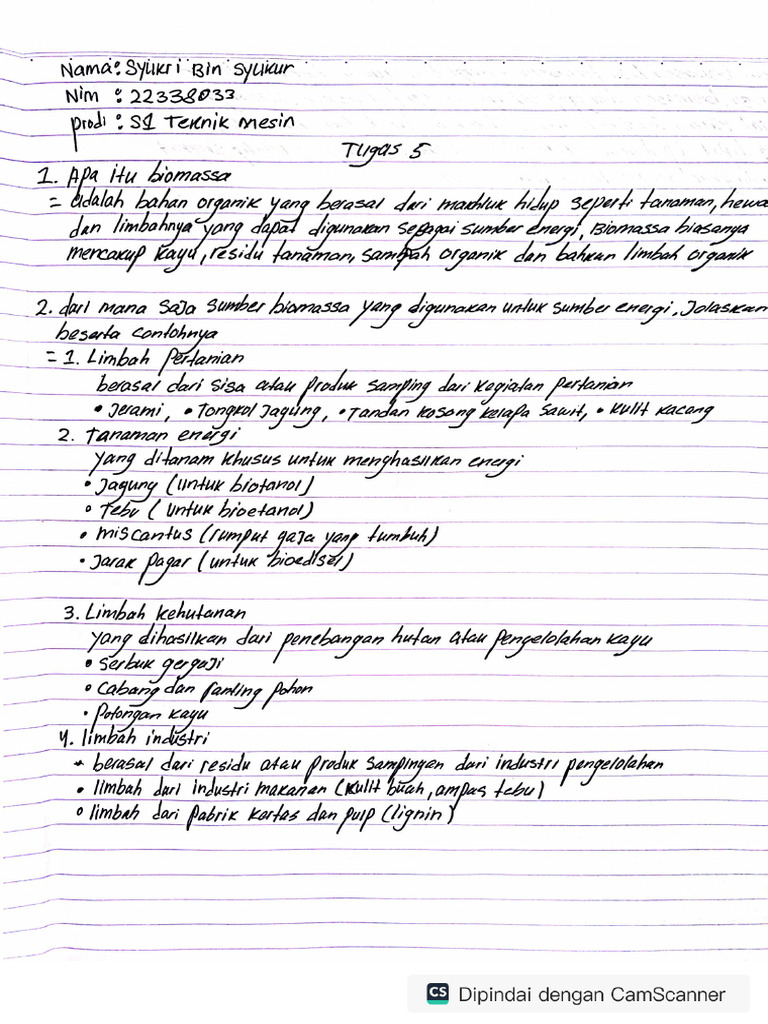 Nama : Syukri Bin Syukur
Nim : 22338033
prodi : S1 Teknik mesin
Tugas 5
1. Apa itu biomassa
= adalah bahan organik yang berasal dari makhluk hidup seperti tanaman, hewa
dan limbahnya yang dapat digunakan sebagai sumber energi, Biomassa biasanya
mencakup kayu, residu tanaman, sampah organik dan bahkan limbah organik
2. dari mana saja sumber biomassa yang digunakan untuk sumber energi, Jelaskan
beserta contohnya
= 1. Limbah Pertanian
berasal dari sisa atau produk samping dari kegiatan pertanian
• Jerami, • Tongkol Jagung, • Tandan kosong kelapa sawit, • kulit kacang
2. Tanaman energi
yang ditanam khusus untuk menghasilkan energi
• Jagung (untuk biotanol)
• Tebu ( untuk bioetanol)
• miscantus (rumput gaja yang tumbuh)
• Jarak Pagar (untuk bioedisel)
3. Limbah kehutanan
yang dihasilkan dari penebangan hutan atau pengelolahan kayu
• Serbuk gergaji
• Cabang dan ranting pohon
• Potongan kayu
4. limbah industri
* berasal dari residu atau produk sampingan dari industri pengelolahan
• limbah dari industri makanan (kulit buah, ampas tebu)
• limbah dari pabrik kertas dan pulp (lignin)
CS Dipindai dengan CamScanner